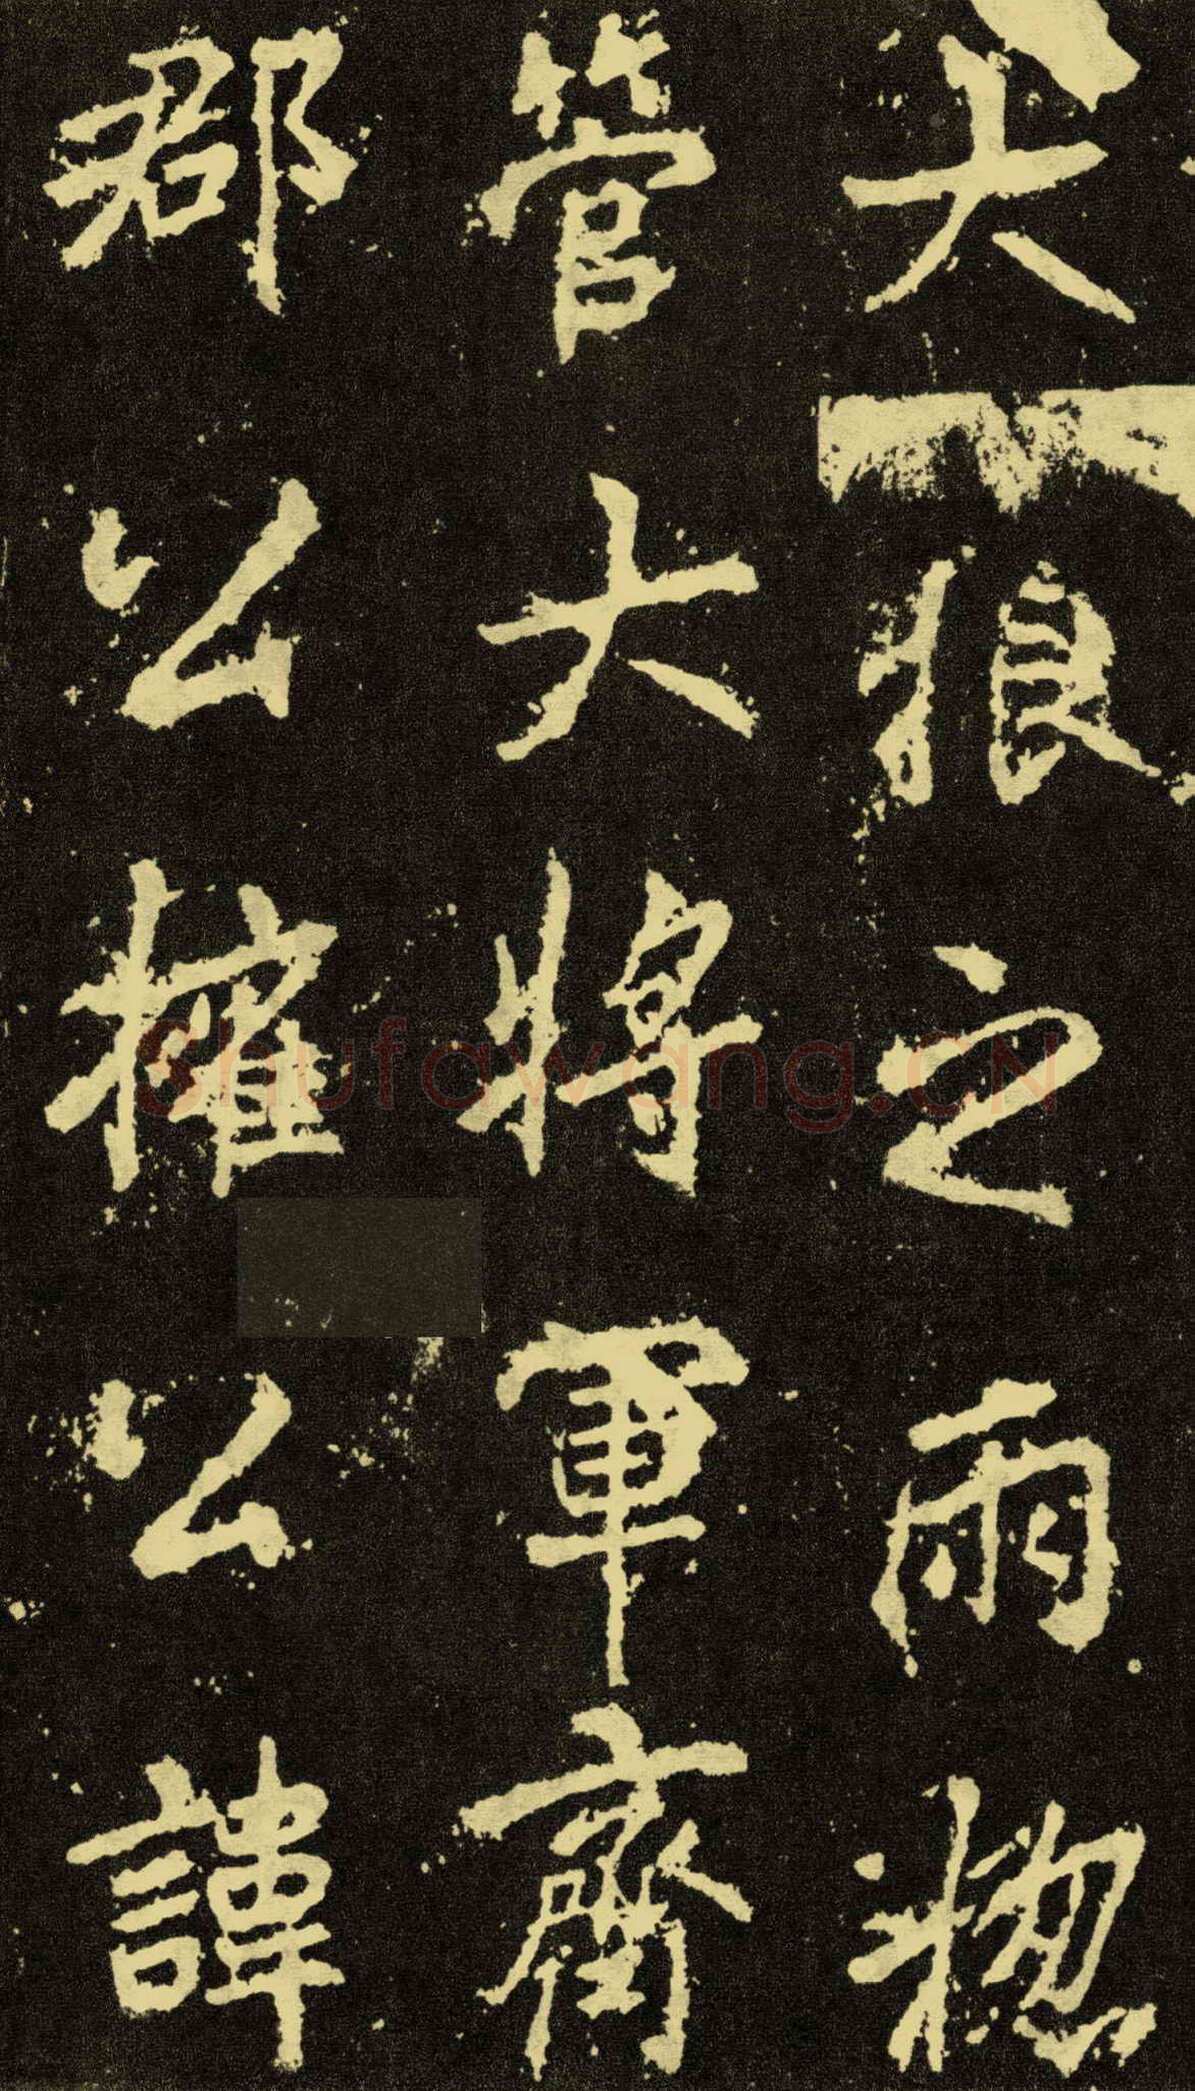 大之雨揔
管大將軍齊
郡公公諱
Shufawang.CN